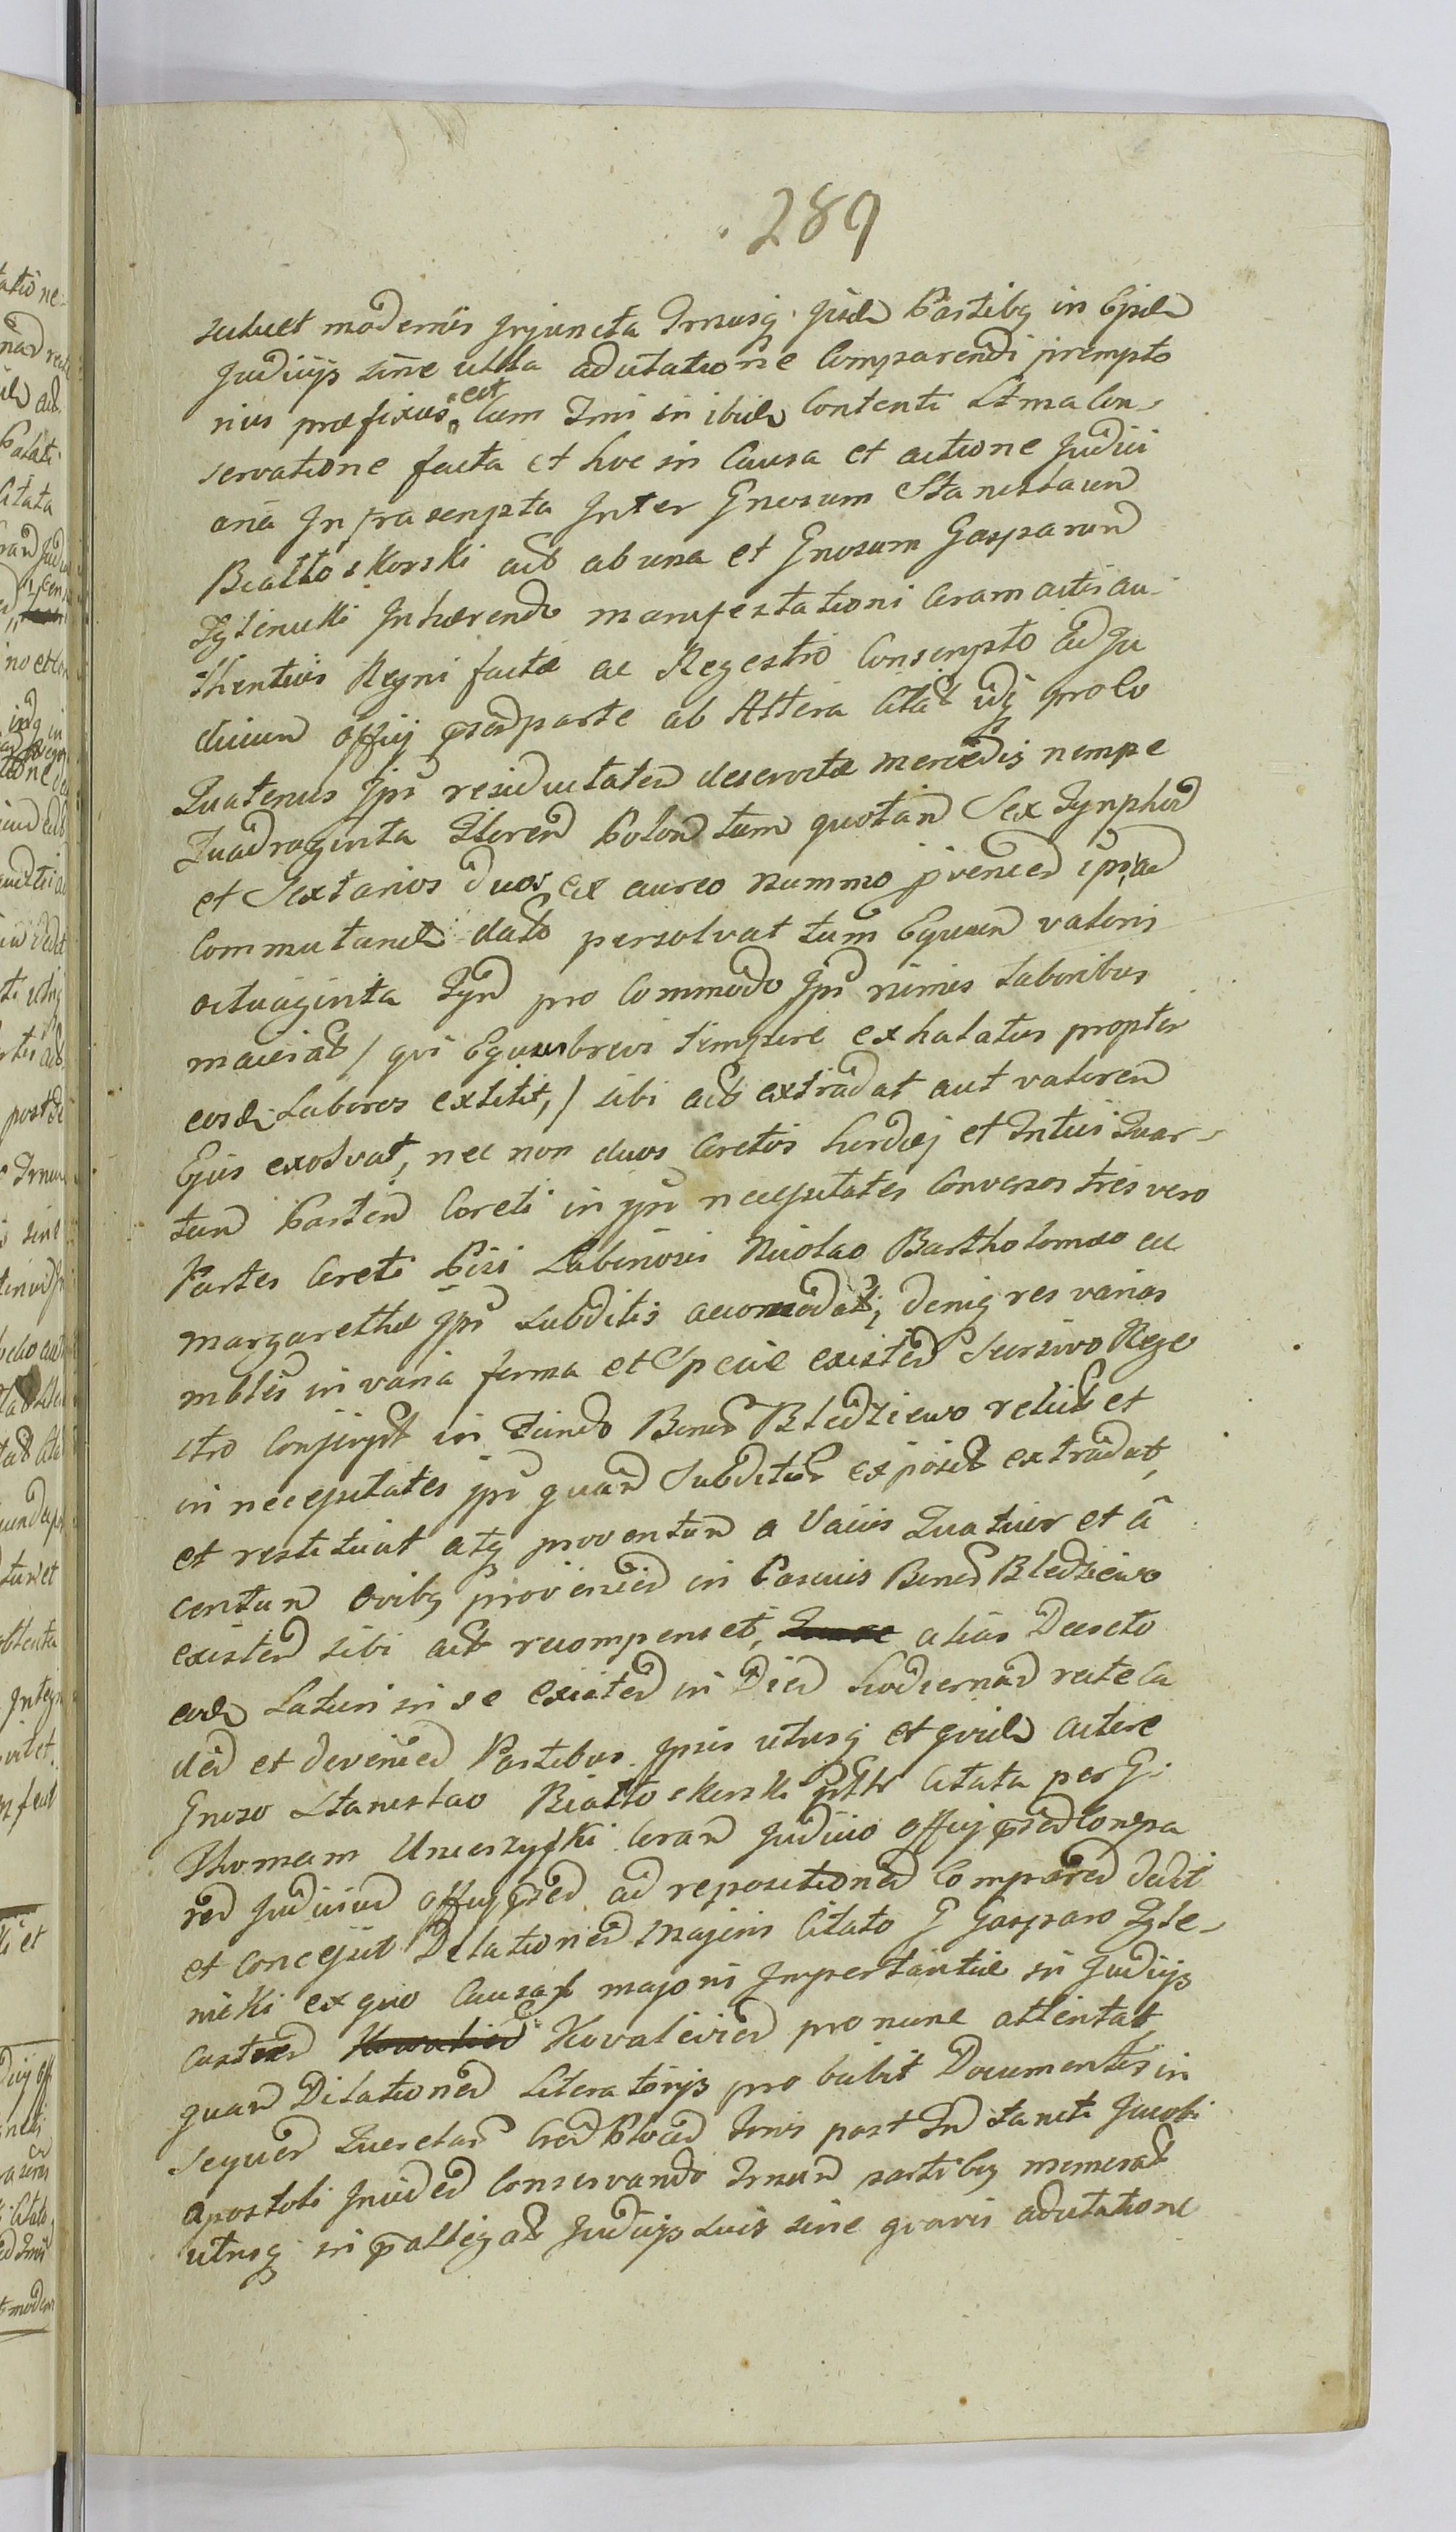 289
suluet modernis Injuncta Trnusq Iisd Partibq in Ejsd
Judicijs sine ulla adcitatione Comparendi prempto
rius præfixus est Cum Trni in ibid Contenti Stma Con-
servatione facta et hoc in Causa et actione Judici
aria Infrascripta Inter Gnosum Stanislaum
Białłoskorski act ab una et Gnosum Gasparum
Zglenicki Inhærendo manifestationi Coram actis au-
thenticis Regni factæ ac Regestro Conscripto ad Ju
dicium officij parte ab Altera Citat idq prolo
Quatenus Ipi residuitatem deservitæ mercedis nempe
Quadraginta Floren Polon tum quotan Sex Tynphis
et Sextarios duos ex aureo nummo provenien
Commutand dato persolvat tum Equum valoris
octuaginta Tyn pro Commodo Ipi nimis laboribus
maciat / qui Equus brevi tempore exhalatus propter
eosd Labores extitit, / sibi act extradat aut valorem
Ejus exolvat, nec non duos Coretos hordej et Tritici Quar-
tam Partem Coreti in ipi necessitates Conversos tres vero
Partes Coreti Pisi Labinosci Nicolao Bartholomæo ac
Margarethæ Ipi Subditis accomodat, deniq res varias
mbles in varia forma et Specie existen Seorsivo Rege
stro Conscript in Fundo Bonor Bledziewo relict et
in necessitates ipi quam Subditor exposit extradat,
et restituat atq proventum a Vaccis Quatuor et â
centum ovibq provenien in Pascuis Bonor Bledziewo
existen sibi act recompenset, alias Decreto
eod Laturi in se existen in Diem hodiernam recte ca
den et devenien Partibus Ipsis utrusq et quid actore
Gnoso Stanislao Białłoskorski Citata per G
Thomam Uncerzyski Coram Judicio officij Compa
ren Judicium officij ad repositionem Comparen dedit
et Concessit Dilationem Majoris Citato G Gasparo Zgle-
nicki ex quo Causas majoris Importantiæ in Judicijs
Castren Kovalevien pro nunc attentat
quam Dilationem Literatorijs pro bubit Documentis in
sequen Querelar Plocen Trnis post sancti Jacobi
apostoli Conservando Trnum partibq memorat
utrusq in allegat Judicijs suis sine gravis adcitatione